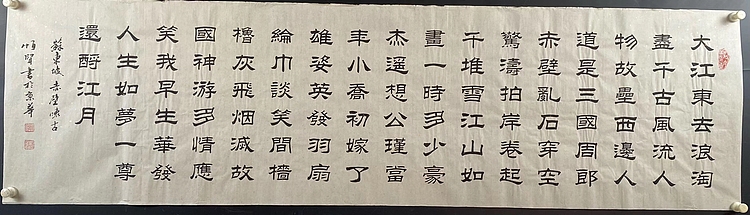 大江東去浪淘
盡千古風流人
物故壘西邊人
道是三國周郎
赤壁亂石穿空
驚濤拍岸卷起
千堆雪江山如
畫一時多少豪
杰遥想公瑾當
年小喬初嫁了
雄姿英發羽扇
綸巾談笑間檣
櫓灰飛烟滅故
國神游多情應
笑我早生華發
人生如夢一尊
還酹江月
蘇東坡赤壁懷古
書於京華